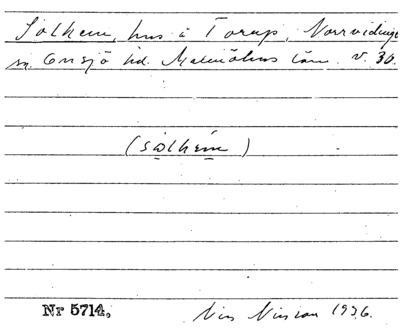 Solhem, hus å Torup, Norrvidinge
sn. Onsjö hd. Malmöhus län. v. 30.
(solhém)
Nr 5714. Nils Nilsson 1936.